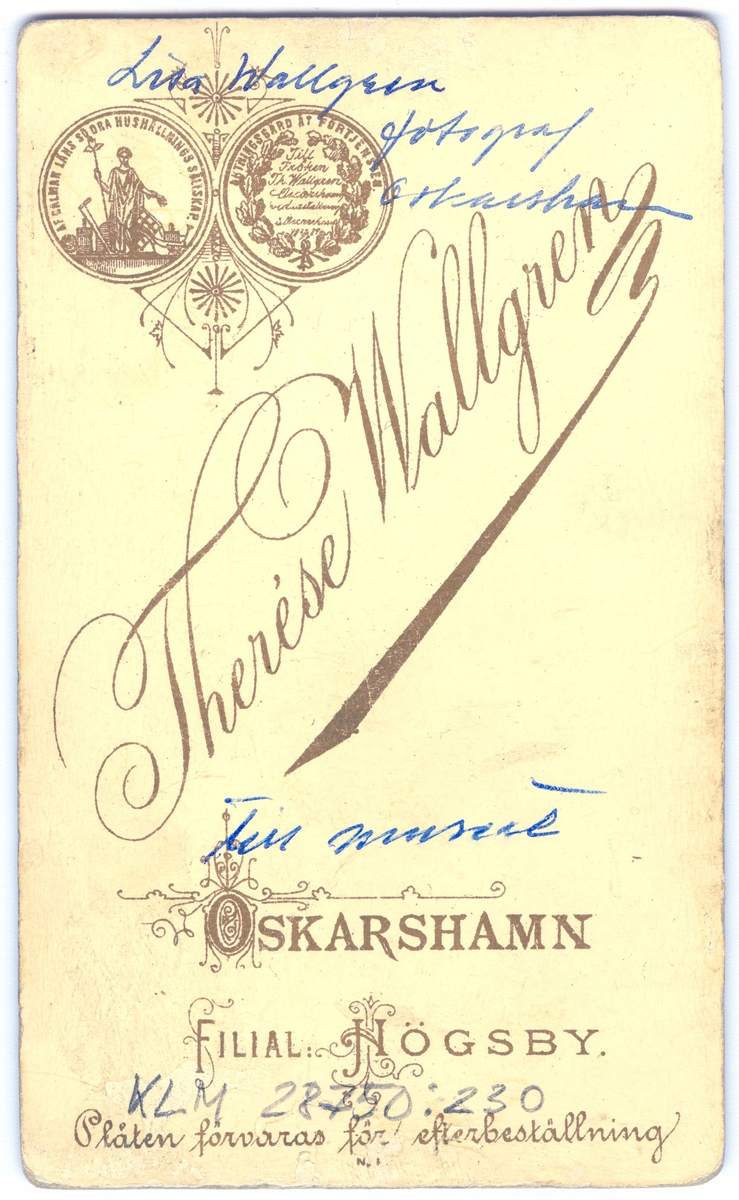 Lisa Wallgren
fotograf
Oskarshamn
AF CALMAR LÄNS SÖDRA HUSHÅLLNINGS SÄLLSKAP
AKTNINGSGÄRD ÅT FÖRTJENSTEN
Till
Fröken
Th. Wallgren
Oscarshamn
vid utställningen
Therése Wallgren
Till museet
OSKARSHAMN
FILIAL: HÖGSBY.
KLM 28750:230
Plåten förvaras för efterbeställning
N. 1